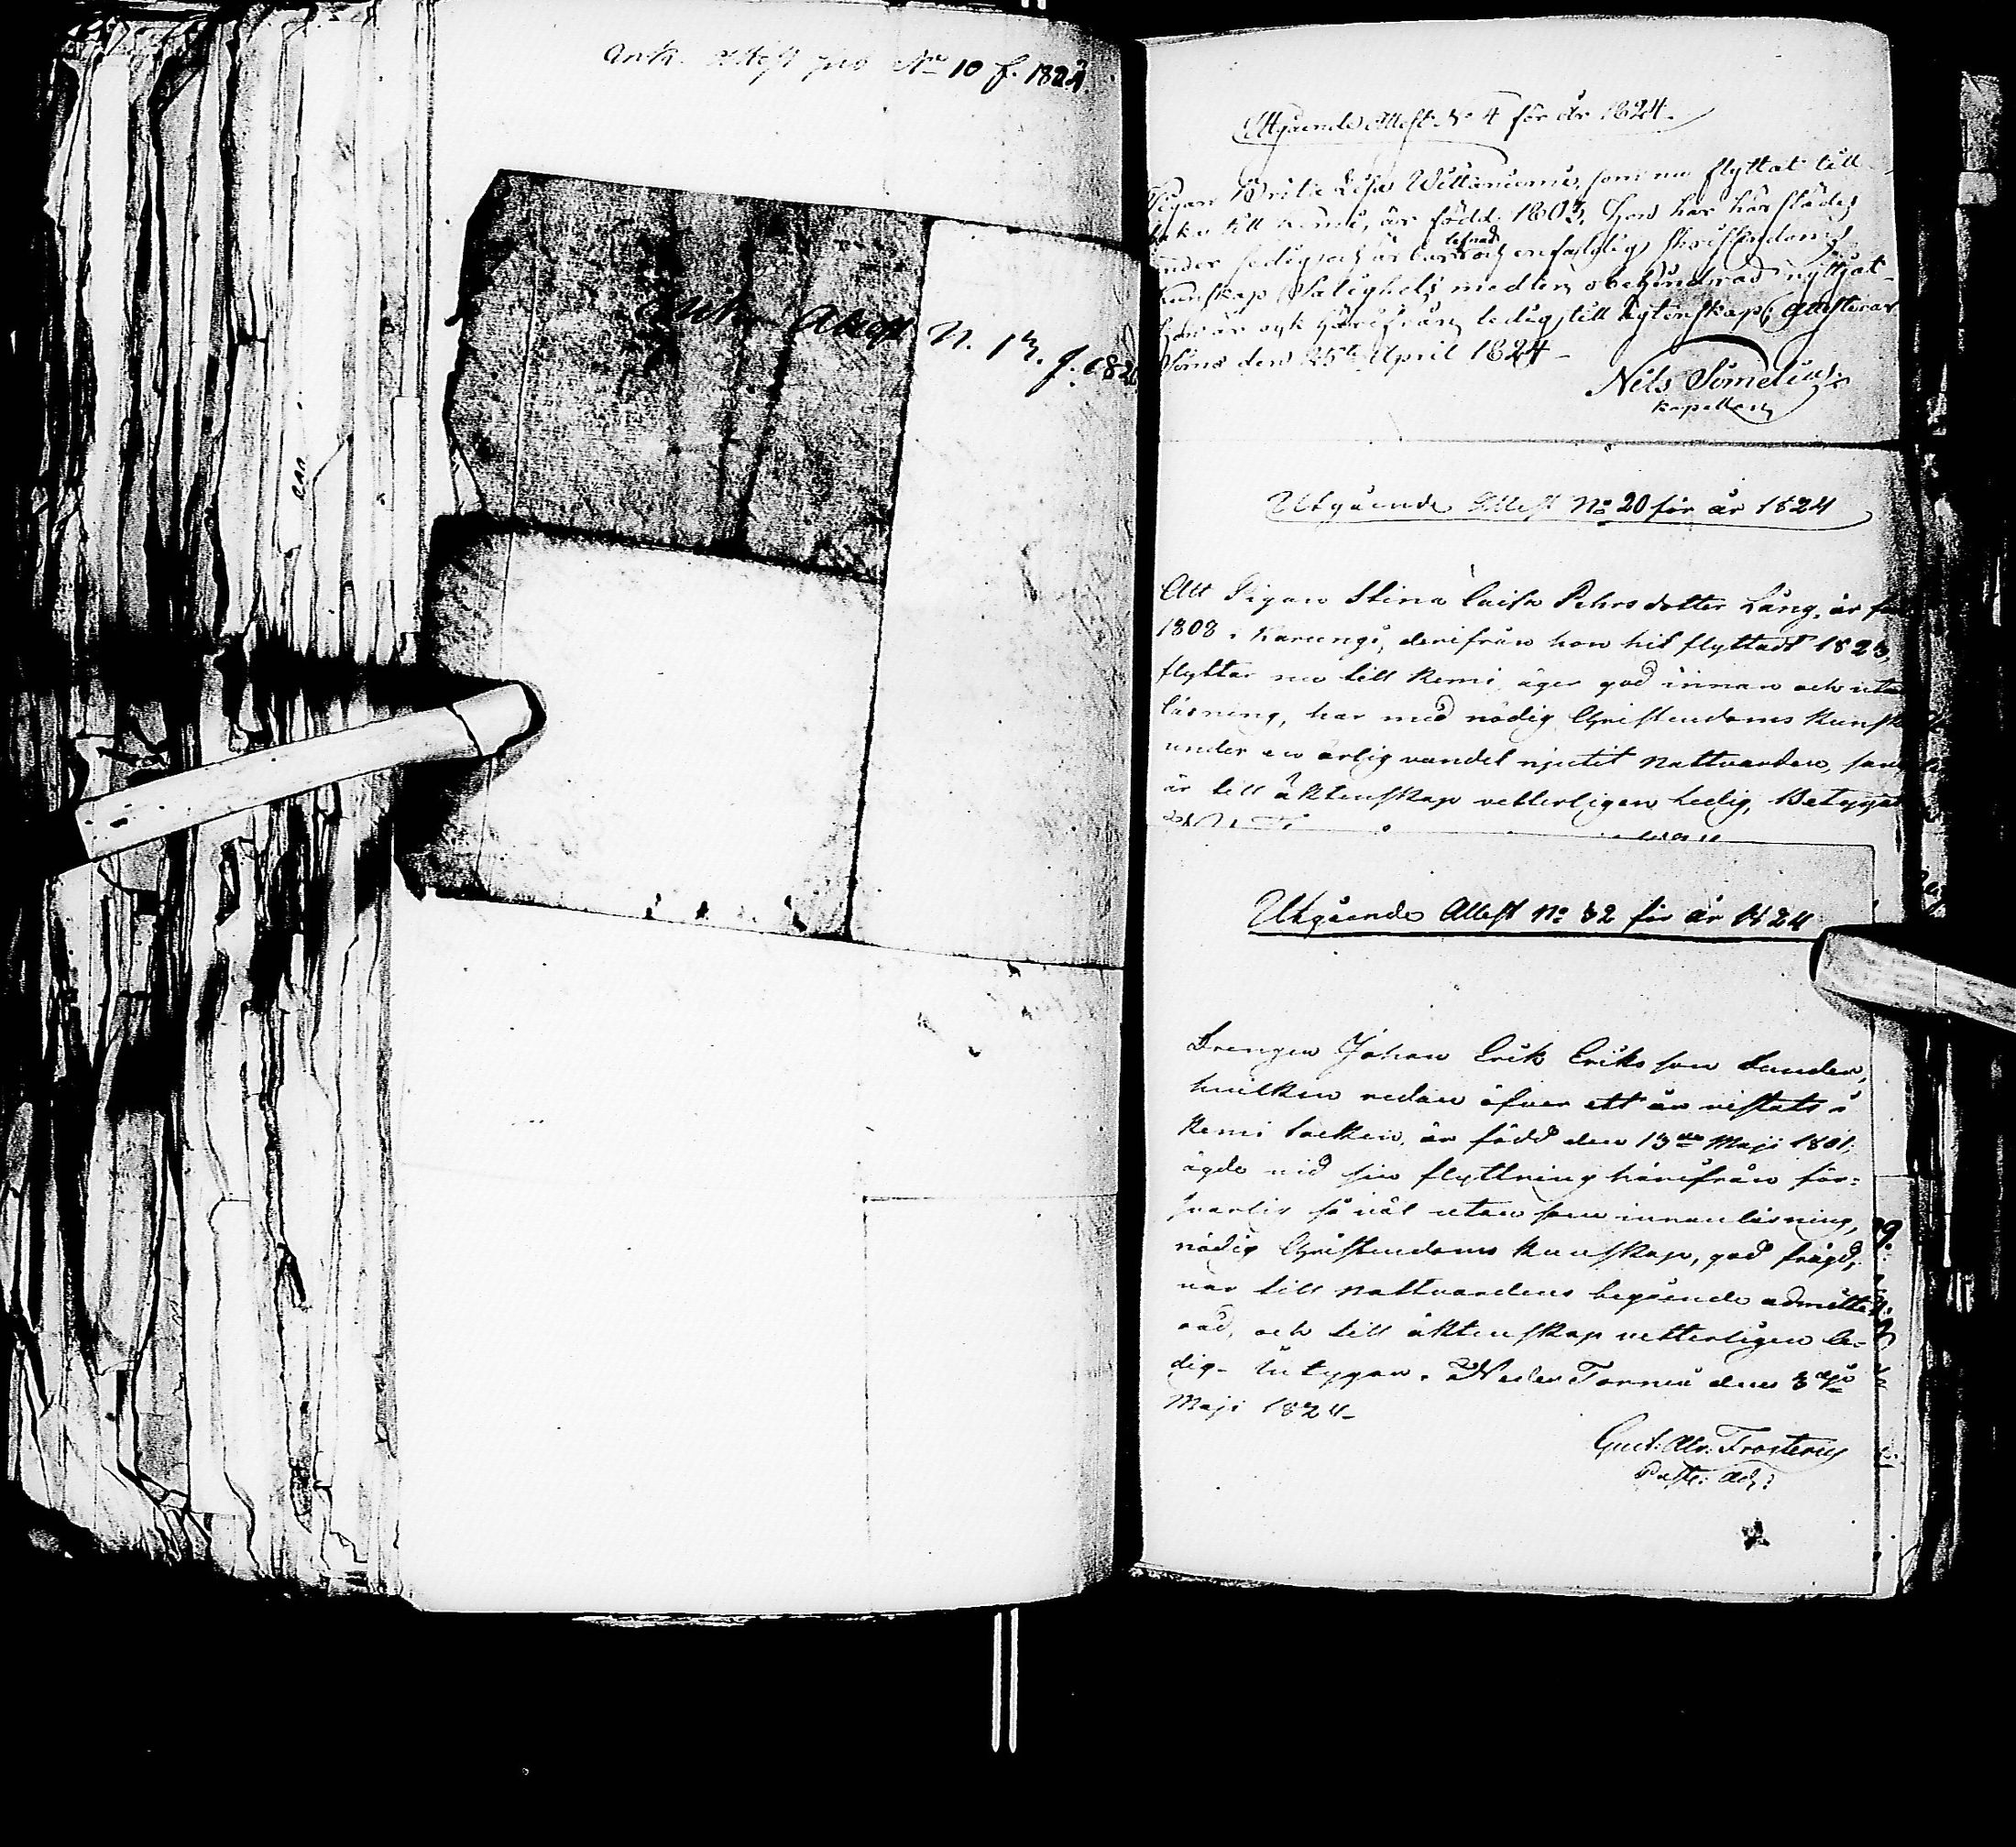 Ank. Attest pro No 10 f. 1824.
Ank. Attest N. 13. f. 182
Utgående Attest No 4 för år 1824.
Pigan Brita Lisa Willamienie, som nu flyttat till
till Kemi, är född 1803, Hon har här städes
lefnad
under och enfaldig Christendoms
Kunskap Salighets medlen obehindrad nyttjat
Hon är ock härifrån ledig till ägtenskap; Attesterar
den 25te April 1824
Nils Sumelius
Kapellan
Utgående Attest No 20 för år 1824
Att Pigan Stina Caisa Pehrsdotter Lång, är fö
1808 i Karungi, derifrån hon hit flyttadt 1823,
flyttar nu till Kemi, äger god innan och uta
läsning, har med nödig Christendoms Kunsk
under en ärlig vandel njutit Nattvarden, sam
är till äktenskap vetterligen ledig, Betygat
Utgående Attest No 32 för år 1824
Drengen Johan Erik Eriksson Sanden,
hvilken redan öfver ett år vistats i
Kemi Socken, är född den 13de Maji 1801;
ägde vid sin flyttning härifrån för-
svarlig så väl utan som innanläsning,
nödig Christendoms Kunskap, god frägd,
var till Nattvardens begående admitte-
rad, och till äktenskap vetterligen le-
dig. Intygar. Neder Torneå den 3dje
Maji 1824
Gust. Adr. Frosterus
Past: Adj: